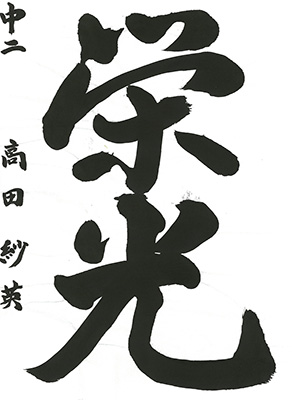 栄光
中二 高田紗英